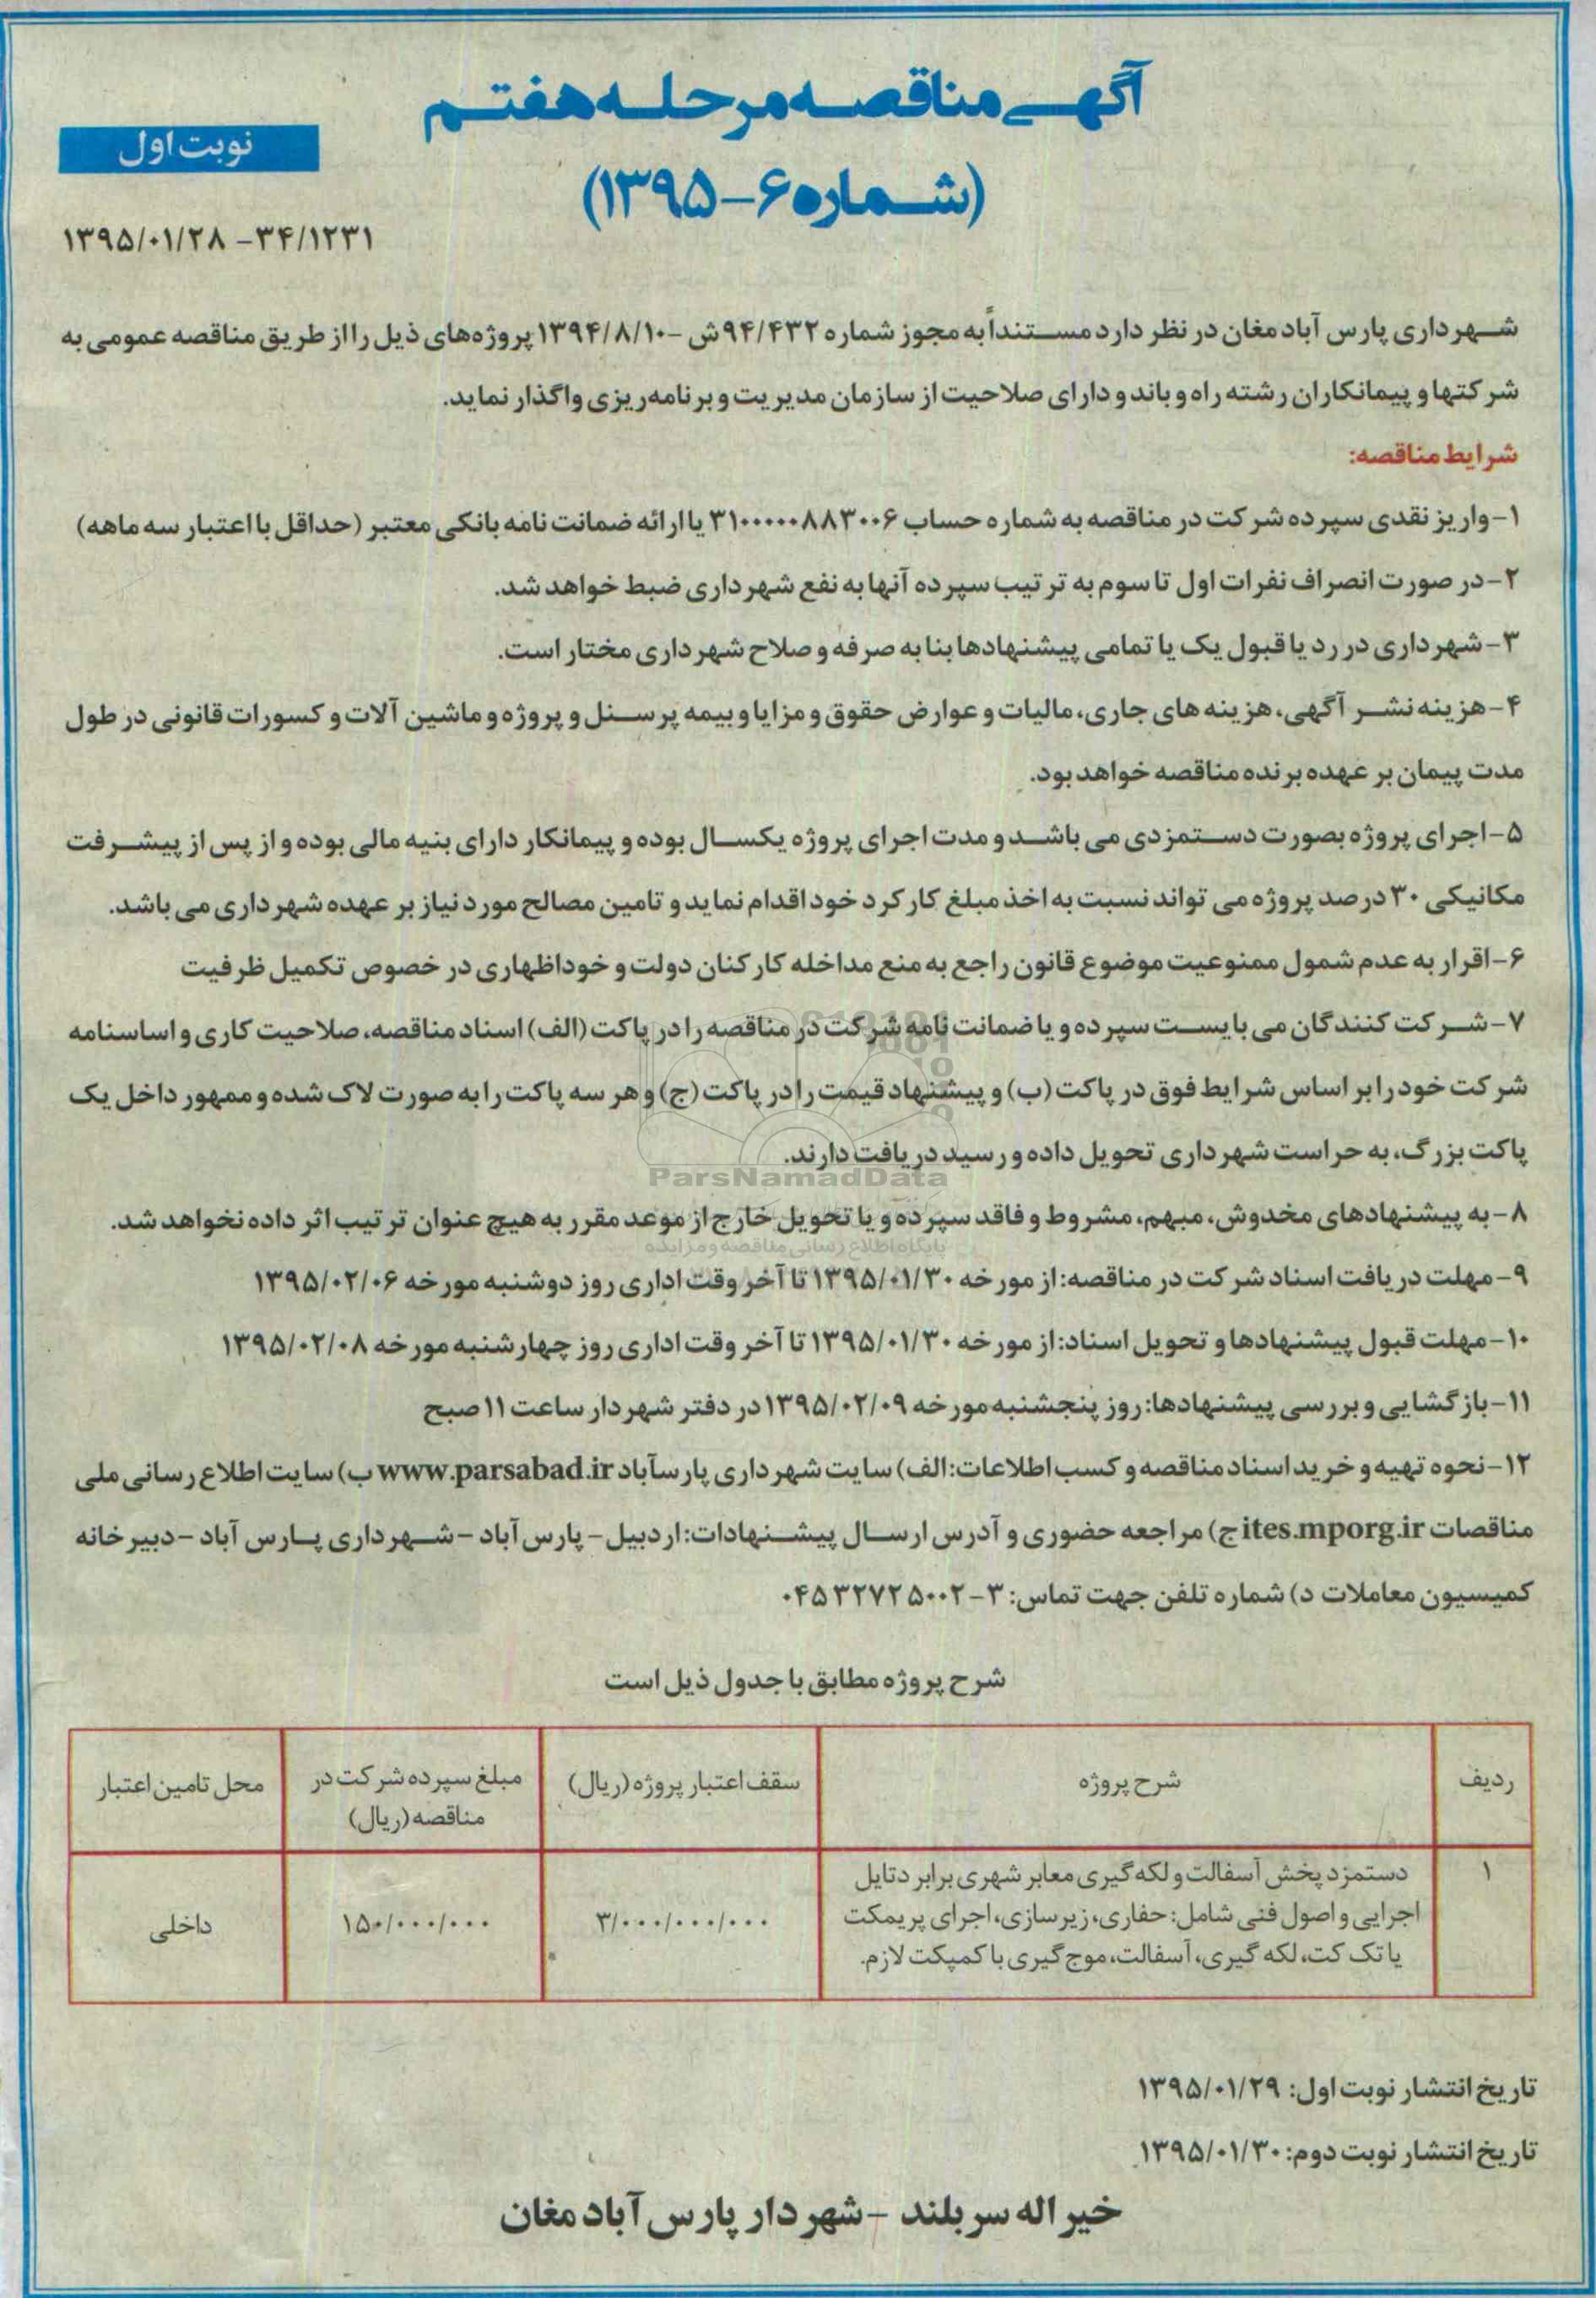 آگهی مناقصه مرحله هفتم
(شماره ۶-۱۳۹۵)
نوبت اول
۳۴/۱۲۳۱- ۱۳۹۵/۰۱/۲۸
شهرداری پارس آباد مغان در نظر دارد مستنداً به مجوز شماره ۹۴/۴۳۲ش -۱۳۹۴/۸/۱۰ پروژه‌های ذیل را از طریق مناقصه عمومی به
شرکتها و پیمانکاران رشته راه و باند و دارای صلاحیت از سازمان مدیریت و برنامه‌ریزی واگذار نماید.
شرایط مناقصه:
۱-واریز نقدی سپرده شرکت در مناقصه به شماره حساب ۳۱۰۰۰۰۰۸۸۳۰۰۶ یا ارائه ضمانت نامه بانکی معتبر (حداقل با اعتبار سه ماهه)
۲-در صورت انصراف نفرات اول تا سوم به ترتیب سپرده آنها به نفع شهرداری ضبط خواهد شد.
۳-شهرداری در رد یا قبول یک یا تمامی پیشنهادها بنا به صرفه و صلاح شهرداری مختار است.
۴-هزینه نشر آگهی، هزینه های جاری، مالیات و عوارض حقوق و مزایا و بیمه پرسنل و پروژه و ماشین آلات و کسورات قانونی در طول
مدت پیمان بر عهده برنده مناقصه خواهد بود.
۵-اجرای پروژه بصورت دستمزدی می باشد و مدت اجرای پروژه یکسال بوده و پیمانکار دارای بنیه مالی بوده و از پس از پیشرفت
مکانیکی ۳۰ درصد پروژه می تواند نسبت به اخذ مبلغ کارکرد خود اقدام نماید و تامین مصالح مورد نیاز بر عهده شهرداری می باشد.
۶-اقرار به عدم شمول ممنوعیت موضوع قانون راجع به منع مداخله کارکنان دولت و خوداظهاری در خصوص تکمیل ظرفیت
۷-شرکت کنندگان می بایست سپرده و یا ضمانت نامه شرکت در مناقصه را در پاکت (الف) اسناد مناقصه، صلاحیت کاری و اساسنامه
شرکت خود را بر اساس شرایط فوق در پاکت (ب) و پیشنهاد قیمت را در پاکت (ج) و هر سه پاکت را به صورت لاک شده و ممهور داخل یک
پاکت بزرگ، به حراست شهرداری تحویل داده و رسید دریافت دارند.
ParsNamadData
۸-به پیشنهادهای مخدوش، مبهم، مشروط و فاقد سپرده و یا تحویل خارج از موعد مقرر به هیچ عنوان ترتیب اثر داده نخواهد شد.
پایگاه اطلاع رسانی مناقصه و مزایده
۹-مهلت دریافت اسناد شرکت در مناقصه: از مورخه ۱۳۹۵/۰۱/۳۰ تا آخر وقت اداری روز دوشنبه مورخه ۱۳۹۵/۰۲/۰۶
۱۰-مهلت قبول پیشنهادها و تحویل اسناد: از مورخه ۱۳۹۵/۰۱/۳۰ تا آخر وقت اداری روز چهارشنبه مورخه ۱۳۹۵/۰۲/۰۸
۱۱-بازگشایی و بررسی پیشنهادها: روز پنجشنبه مورخه ۱۳۹۵/۰۲/۰۹ در دفتر شهردار ساعت ۱۱ صبح
۱۲-نحوه تهیه و خرید اسناد مناقصه و کسب اطلاعات: الف) سایت شهرداری پارسآباد www.parsabad.ir ب) سایت اطلاع رسانی ملی
مناقصات ites.mporg.ir ج) مراجعه حضوری و آدرس ارسال پیشنهادات: اردبیل- پارس آباد -شهرداری پارس آباد -دبیرخانه
کمیسیون معاملات د) شماره تلفن جهت تماس: ۳-۰۴۵۳۲۷۲۵۰۰۲
شرح پروژه مطابق با جدول ذیل است
ردیف	شرح پروژه	سقف اعتبار پروژه (ریال)	مبلغ سپرده شرکت در	محل تامین اعتبار
مناقصه (ریال)
۱	دستمزد پخش آسفالت و لکه گیری معابر شهری برابر دتایل
اجرایی و اصول فنی شامل: حفاری، زیرسازی، اجرای پریمکت	۳/۰۰۰/۰۰۰/۰۰۰	۱۵۰/۰۰۰/۰۰۰	داخلی
یا تک کت، لکه گیری، آسفالت، موج گیری با کمپکت لازم.
تاریخ انتشار نوبت اول: ۱۳۹۵/۰۱/۲۹
تاریخ انتشار نوبت دوم: ۱۳۹۵/۰۱/۳۰
خیر اله سربلند -شهردار پارس آباد مغان